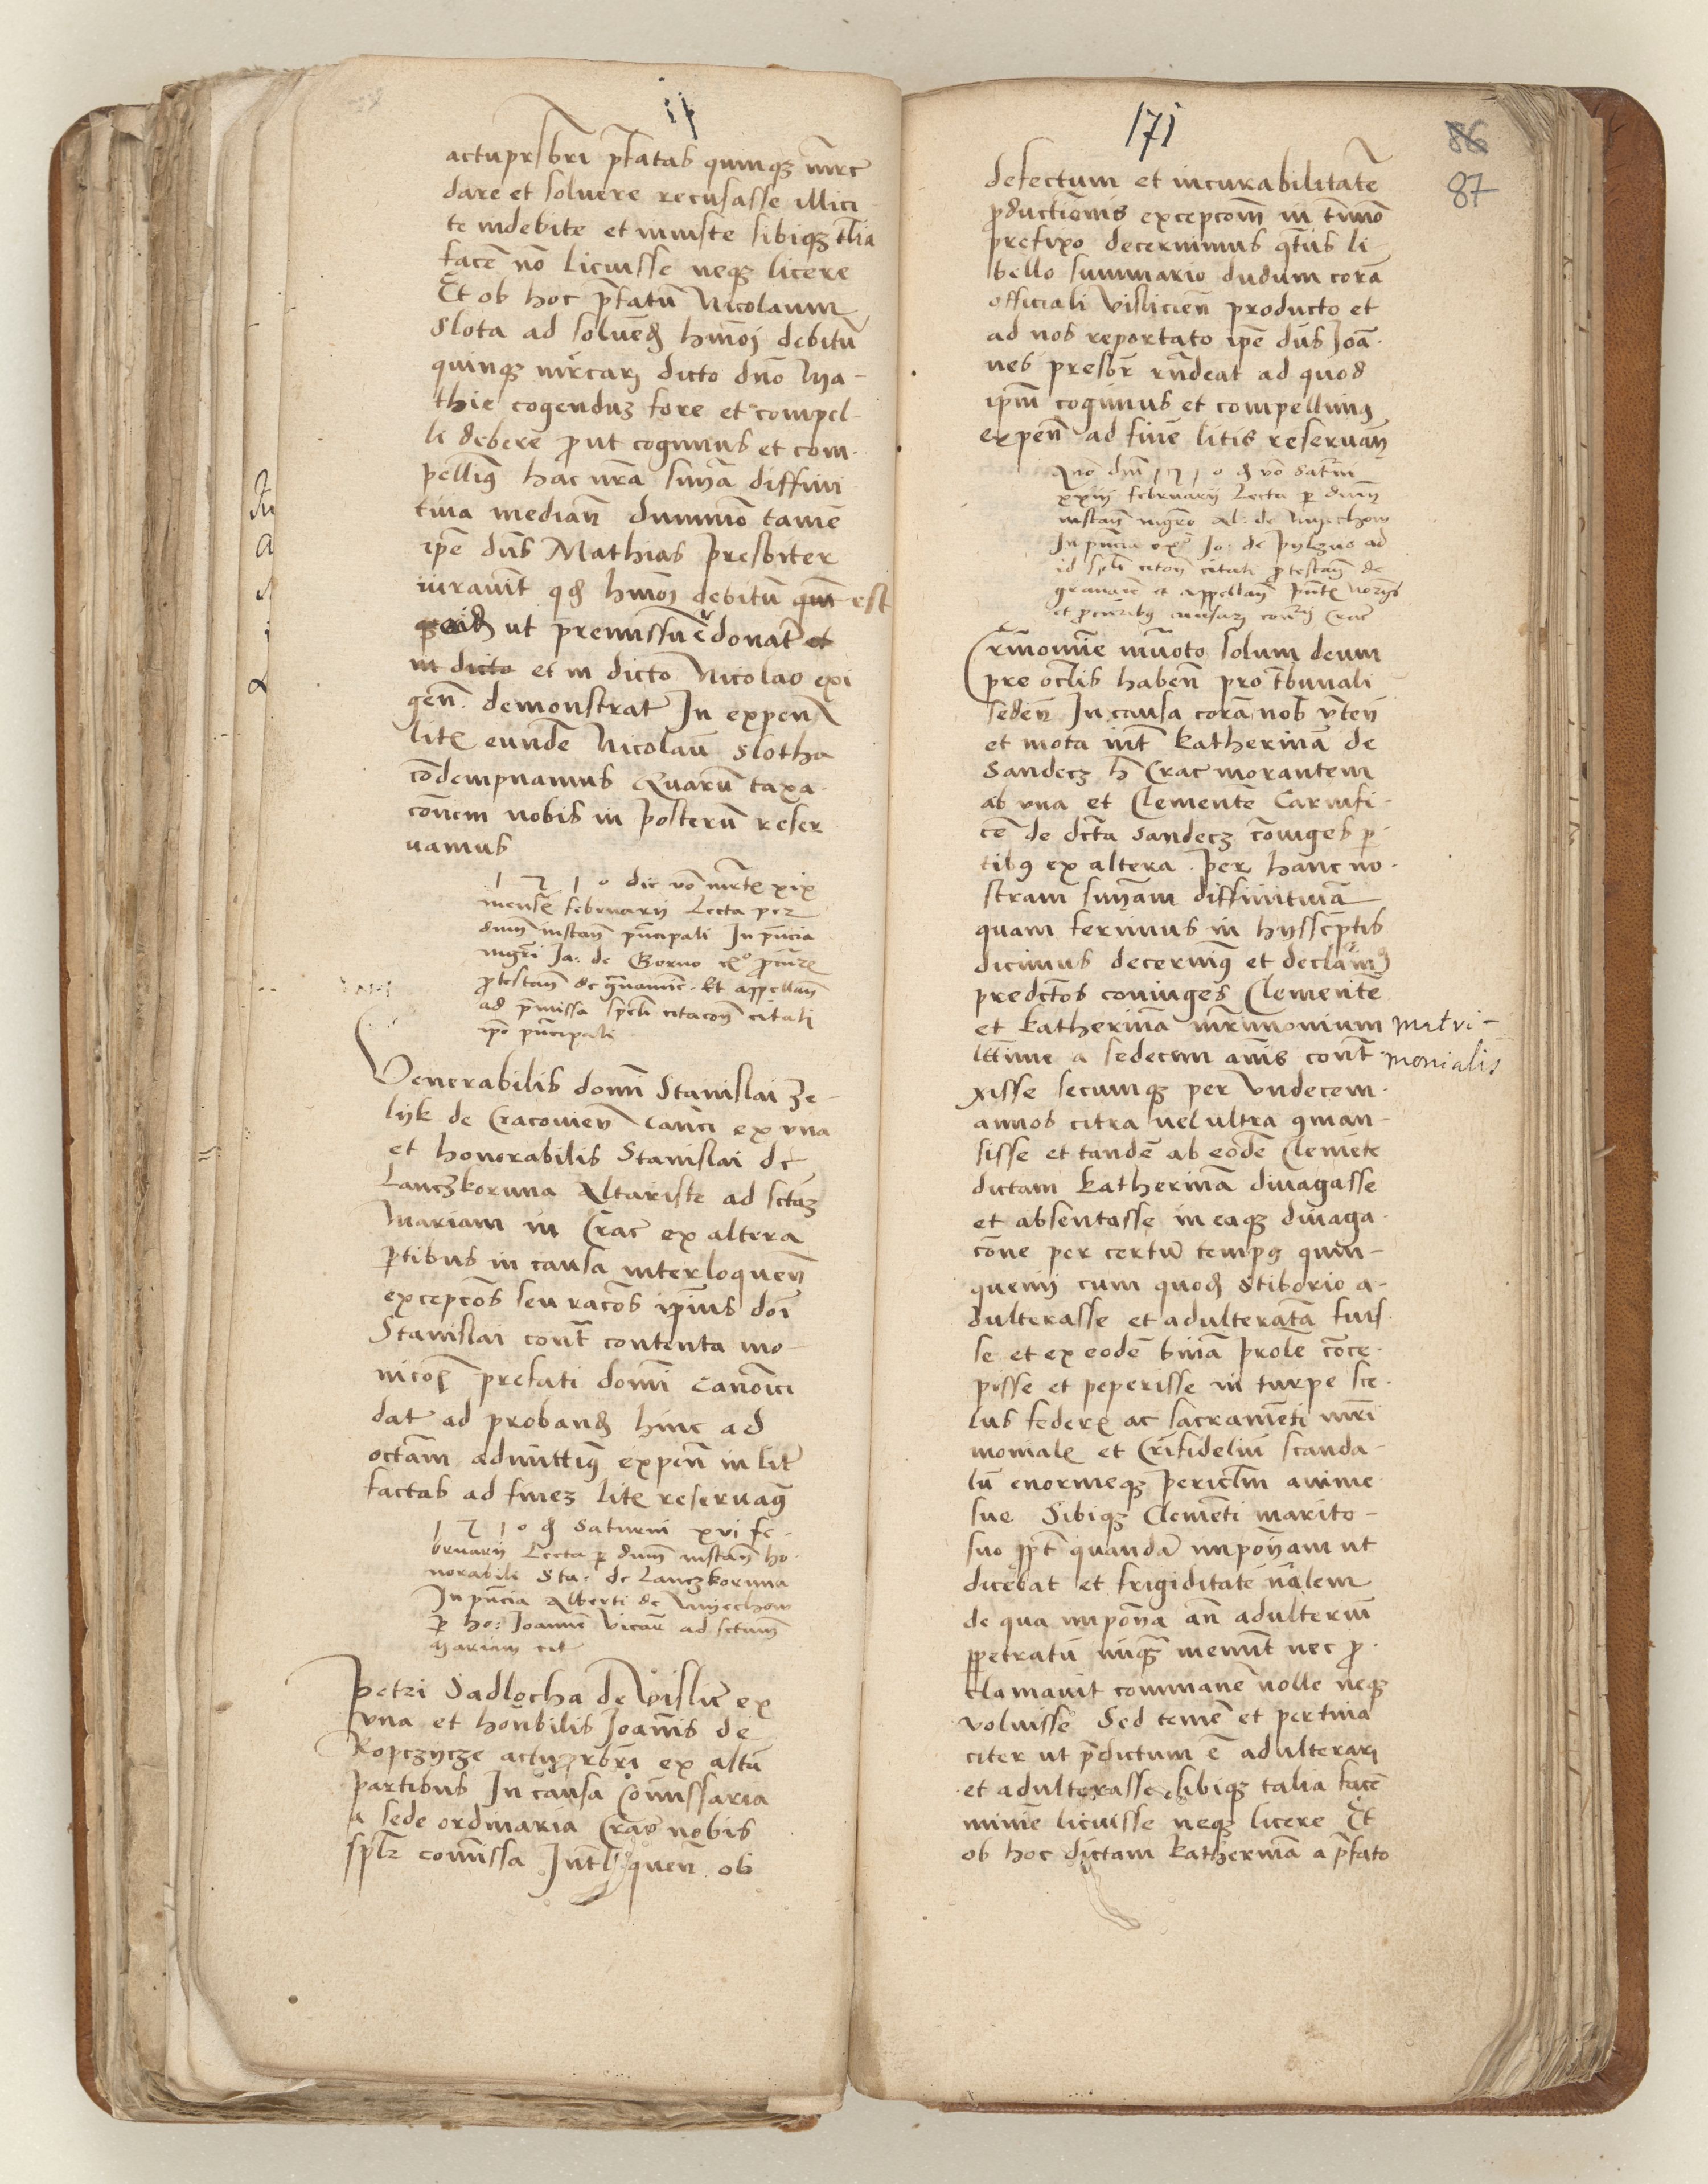 actuprsbri p̄fatas quinqz mr̄c
dare et soluere recusasse illici
te indebite et iniuste sibiqz tl̄ia
facē nō licuisse neqz licere
Et ob hoc p̄fatū Nicolaum
Slota ad soluēd hmōi debitū
quinqz mr̄car dicto dnō Ma-
thie cogenduz fore et compel-
li debere put cogimus et com-
pellimꝰ hac nr̄a sn̄ia diffini
tiua median̄ dummō tamē
ip̄e dn̄s Mathias presbiter
iurauīt qd hmōi debitū est
ut premissū donat̄
et in dicto Nicolao exi
gen̄ demonstrat In expen̄
litꝭ eundē Nicolaū Slotha
cōdempnamus Quarū taxa-
cōnem nobis in posterū reser
uamus
1 5 1 0 die vō mr̄tꝭ xix
mensꝭ februarij Lecta per
dnm̄ instan̄ pn̄cipali In pn̄cia
mgr̄i Ja: de Borno
protestan̄ de grauamē. Et appellan̄
ad p̄missa spc̄li citacōn citati
ip̄o pn̄cipali
Venerabilis domī Stanislai Ze-
lyk de Cracouien̄ can̄ci ex vna
et honorabilis Stanislai de
Lanczkoruna Altariste ad sctāz
Mariam in Crac̄ ex altera
ptibus in causa interloquen̄
excepcōs seu racōs ipīus doī
Stanislai cont̄ contenta mo
nicōs prefati domī Canōici
dat̄ ad proband hinc ad
octām admittimꝰ expen̄ in lit̄
factas ad finez litꝭ reseruamꝰ
1 5 1 0 d Saturni xvi fe-
bruarij Lecta p dnm̄ instan̄ ho-
norabili Sta: de Lanczkoruna
In pn̄cia Alberti de Myechow
p ho: Joannē vicar̄ ad sctam̄
Mariam cit̄
Petri Sadlocha de Vislic̄ ex
vna et honbilis Joan̄is de
Ropczycze actuprbrī ex altā
partibus In causa Comissaria
a sede ordinaria Crac̄ nobis
splr̄ comissa Int̄loquen̄ ob
171
86
87
defectum et incurabilitatē
productionis excepcōm in tīmō
prefixo decernimus qtn̄s li
bello summario dudum corā
officiali Vislicien̄ producto et
ad nos reportato ip̄e dn̄s Joā-
nes presbr̄ rn̄deat ad quod
ipm̄ cogimus et compellimꝰ
expen̄ ad finē litis reseruan̄
Anō dnī 1510 d vō Sat̄ni
xxiij februarij Lecta p dnm̄
instan̄ mgrō Al: de Myechow
In pn̄cia Jo: de Pylzno ad
id spc̄li citōn citati protestan̄ de
grauamē et appellan̄ pn̄tꝭ notrijs
et procurībꝰ causar consrij Crac̄
Crīnomīe inuōto solum deum
pre oclis haben̄ pro tbunali
seden̄ In causa corā nob vten̄
et mota int̄ Katherinā de
Sandecz h̄ Crac̄ morantem
ab vna et Clementē Carnifi-
cē de dctā Sandecz cōiuges p-
tibꝰ ex altera Per hanc no-
stram sn̄iam diffinitiuā
quam ferimus in hysscptis
dicimus decernimꝰ et declāmꝰ
predctōs coniuges Clementē
et Katherinā mrīmonium
lttīme a sedecim an̄is cont̄
xisse secumqz per vndecem
annos citra uel ultra 9man-
sisse et tandē ab eodē Clemēte
dictam Katherinā diuagasse
et absentasse in eaqz diuaga-
cōne per certū tempꝰ quin-
quenij cum quod Stiborio a-
dulterasse et adulteratā fuis-
se et ex eodē binā prolē cōce-
pisse et peperisse in turpe sce-
lus federꝭ ac sacramēti mrī
monialꝭ et Crifidelūi scanda-
lū enormeqz periclm̄ anime
sue Sibiqz Clemēti marito
suo ppt̄ quandā impōnam ut
dicebat et frigiditatē nālem
de qua impōna an̄ adulteriū
ppetratū nūqz menūt nec p-
clamauit commanē nolle neqz
voluisse Sed temē et pertina
citer ut p̄dictum ē adulterari
et adulterasse sibiqz talia facē
minīe licuisse neqz licere Et
ob hoc dictam Katherinā a p̄fato
matri-
monialis